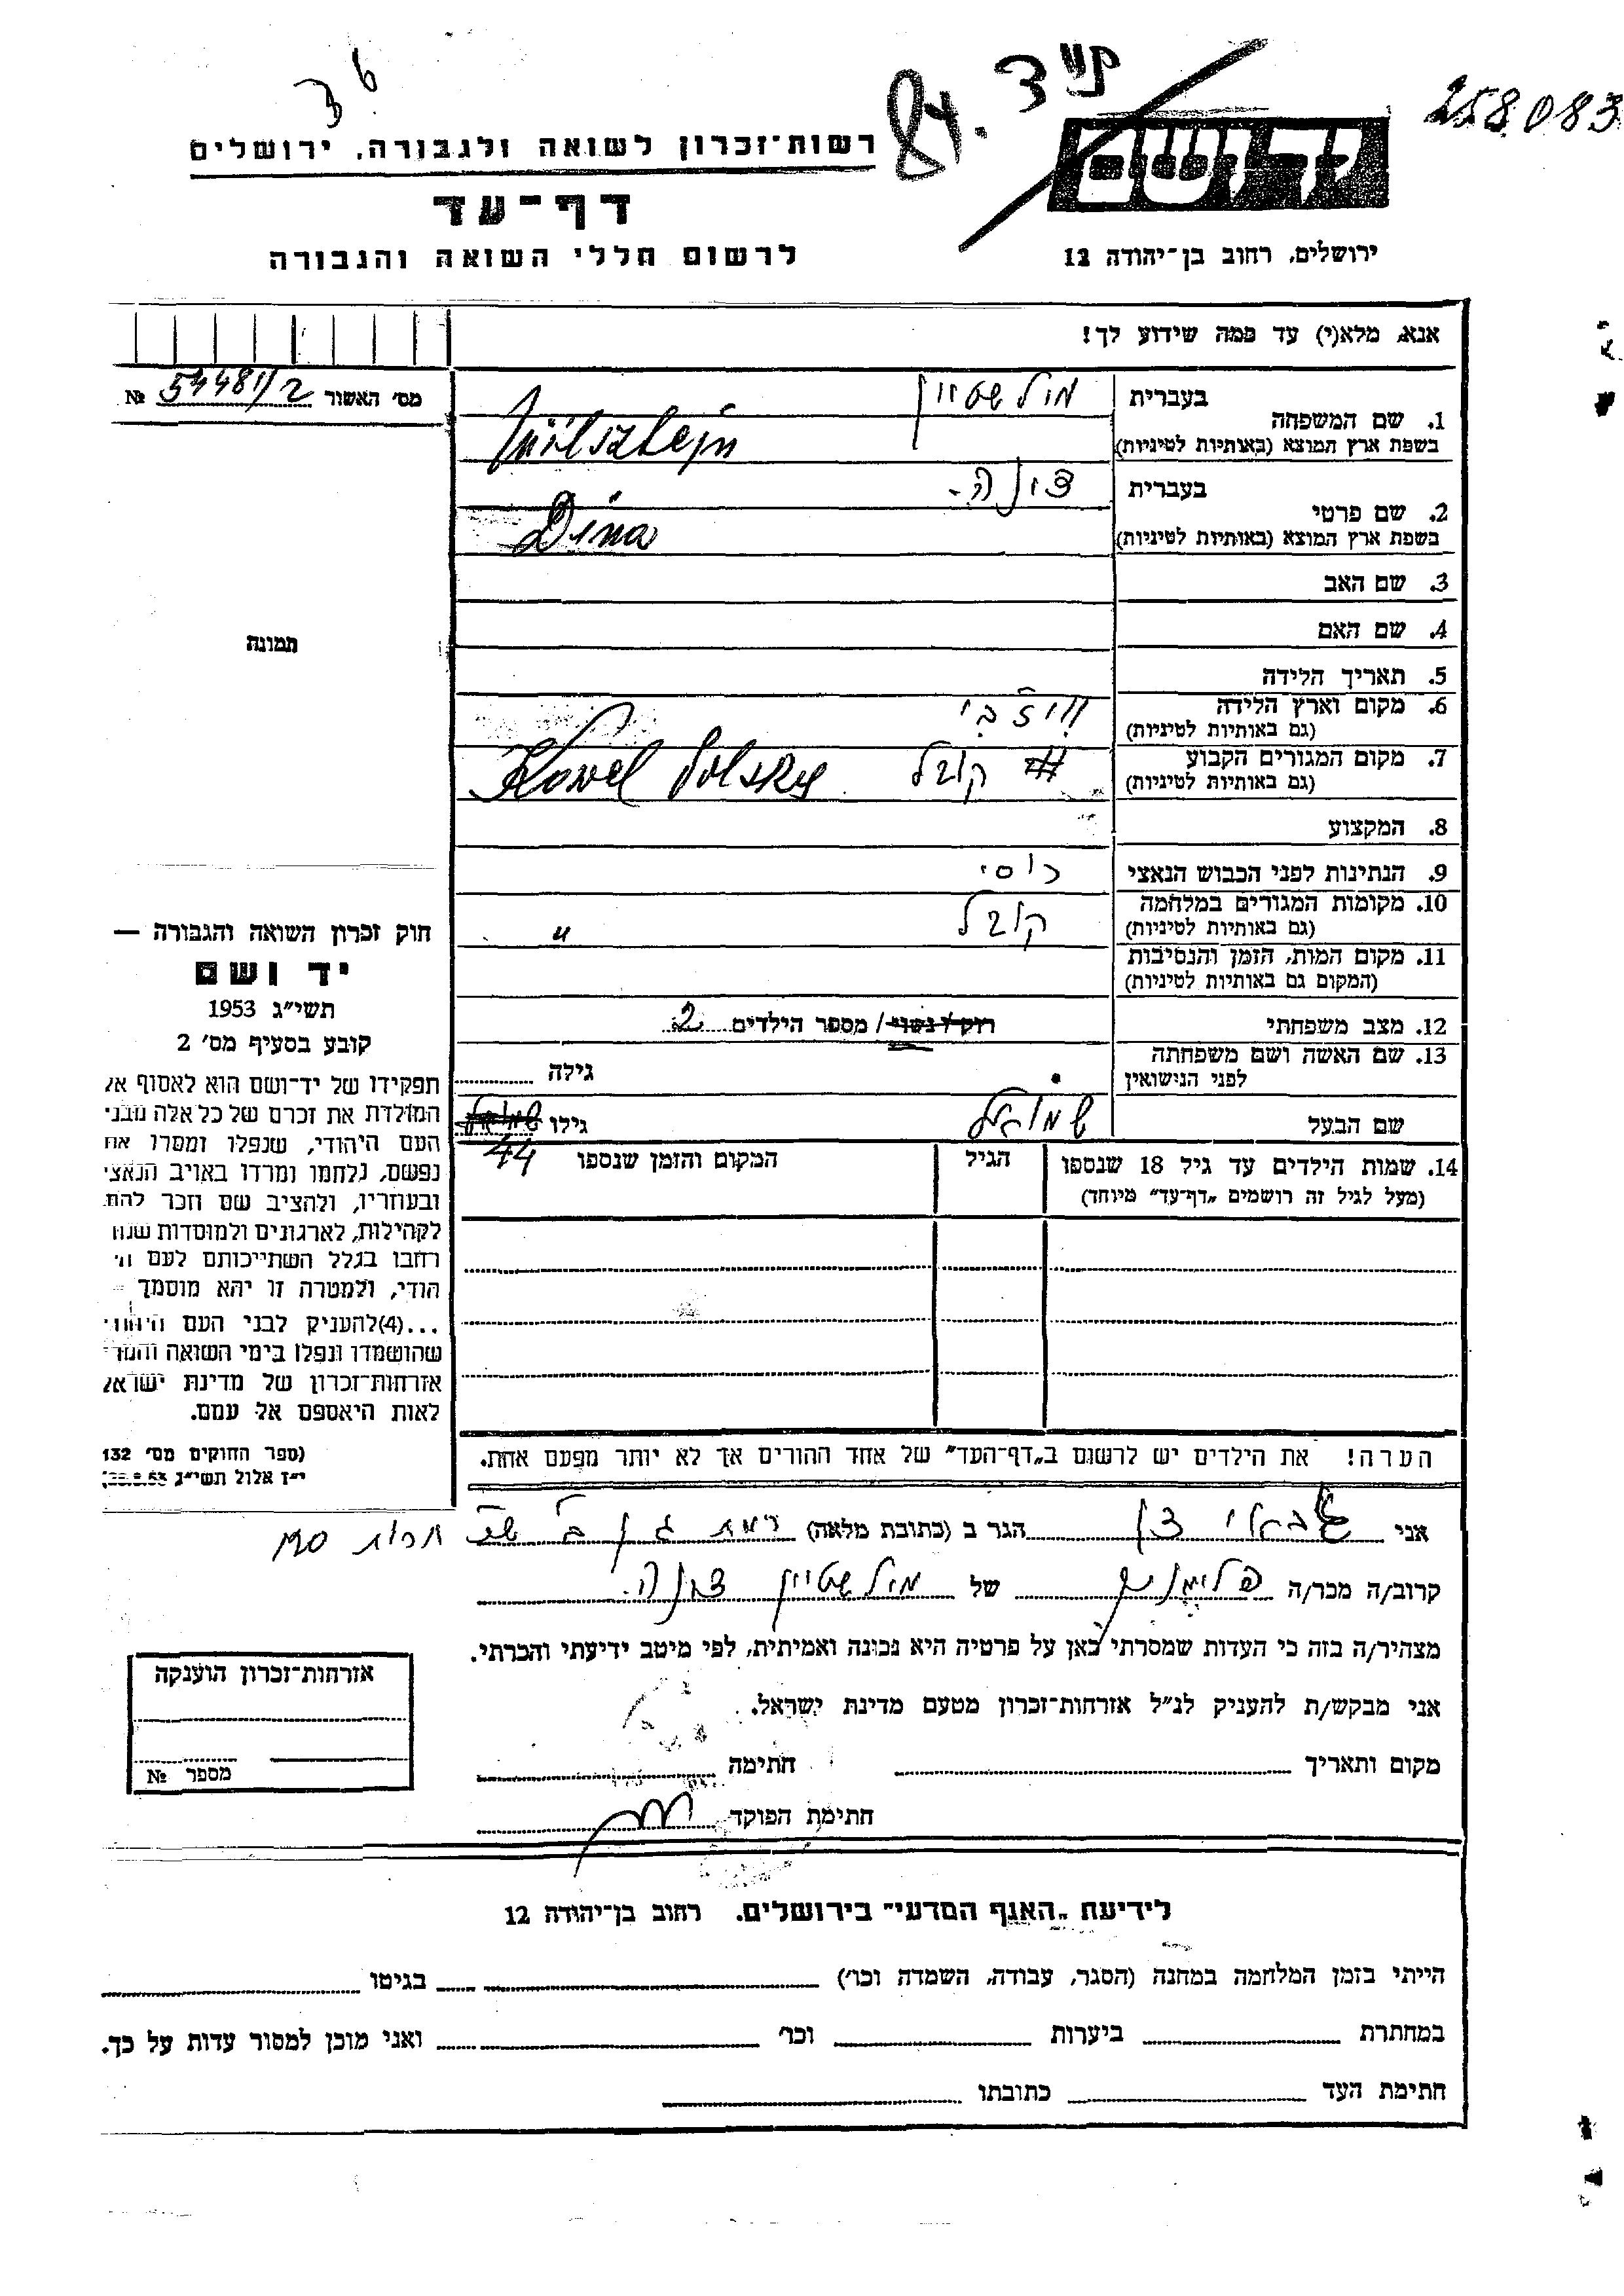 258083
קע״ד
84.
36
ידושם
רשות־זכרון לשואה ולגבורה, ירושלים
דף־עד
לרשום חללי השואה והגבורה
ירושלים, רחוב בן־יהודה 12
אנא, מלא(י) עד כמה שידוע לך!
מס׳ האשור 54481/2 №
1. שם המשפחה
בעברית מולשטיין
בשפת ארץ המוצא (באותיות לטיניות)
2. שם פרטי
בעברית דינה.
בשפת ארץ המוצא (באותיות לטיניות) Dina
3. שם האב
4. שם האם
תמונה
5. תאריך הלידה
6. מקום וארץ הלידה
(גם באותיות לטיניות)
7. מקום המגורים הקבוע קובל Kowel
(גם באותיות לטיניות)
8. המקצוע
9. הנתינות לפני הכבוש הנאצי רוסי
10. מקומות המגורים במלחמה קובל "
(גם באותיות לטיניות)
11. מקום המות, הזמן והנסיבות
(המקום גם באותיות לטיניות)
12. מצב משפחתי רוק/נשוי/ מספר הילדים 2
13. שם האשה ושם משפחתה
לפני הנישואין גילה
שם הבעל שמואל גילו 44
14. שמות הילדים עד גיל 18 שנספו הגיל המקום והזמן שנספו
(מעל לגיל זה רושמים „דף־עד״ מיוחד)
חוק זכרון השואה והגבורה —
יד ושם
תשי״ג 1953
קובע בסעיף מס׳ 2
תפקידו של יד־ושם הוא לאסוף אל
המולדת את זכרם של כל אלה מבני
העם היהודי, שנפלו ומסרו את
נפשם, נלחמו ומרדו באויב הנאצי
ובעוזריו, ולהציב שם וזכר להם,
לקהילות, לארגונים ולמוסדות שנח
רחבו בגלל השתייכותם לעם הי
הודי, ולמטרה זו יהא מוסמך –
...(4)להעניק לבני העם היהודי
שהושמדו ונפלו בימי השואה והמרי
אזרחות־זכרון של מדינת ישראל
לאות היאספם אל עמם.
(ספר החוקים מס׳ 132
י״ז אלול תשי״ג
הערה! את הילדים יש לרשום ב„דף־העד״ של אחד ההורים אך לא יותר מפעם אחת.
אני הגר ב (כתובת מלאה) רמת גן
קרוב/ה מכר/ה של מולשטיין דינה.
מצהיר/ה בזה כי העדות שמסרתי כאן על פרטיה היא נכונה ואמיתית, לפי מיטב ידיעתי והכרתי.
אני מבקש/ת להעניק לנ״ל אזרחות־זכרון מטעם מדינת ישראל.
מקום ותאריך חתימה
חתימת הפוקד
אזרחות־זכרון הוענקה
מספר №
לידיעת „האגף המדעי״ בירושלים, רחוב בן־יהודה 12
הייתי בזמן המלחמה במחנה (הסגר, עבודה, השמדה וכו׳) בגיטו
במחתרת ביערות וכו׳ ואני מוכן למסור עדות על כך.
חתימת העד כתובתו